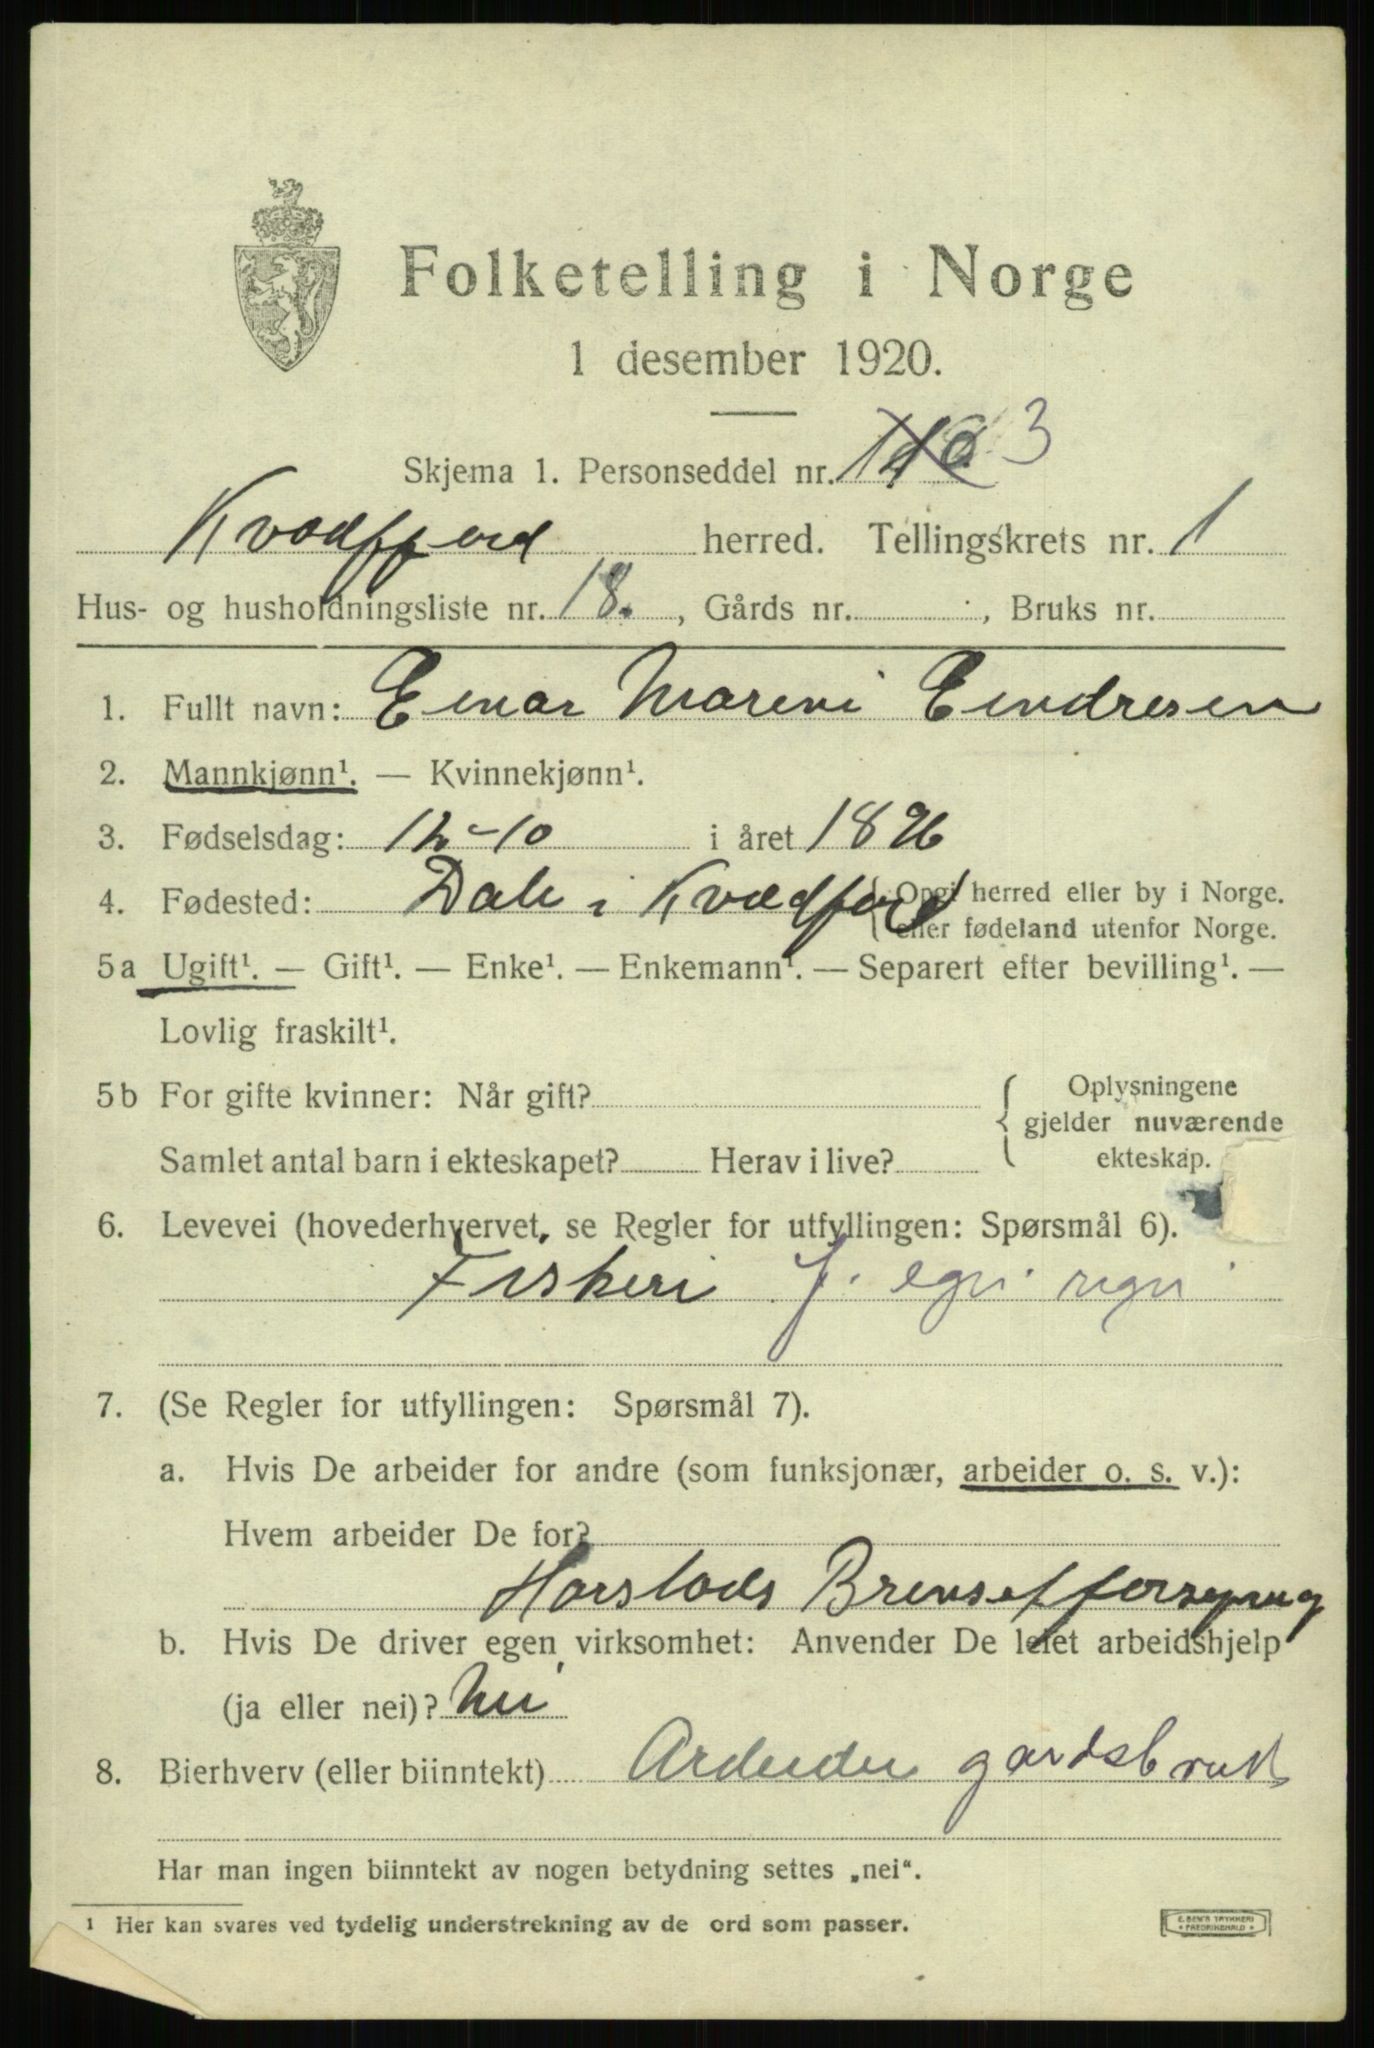 Folketelling i Norge
1 desember 1920.
Skjema 1. Personseddel nr. 3
Kvædfjord herred. Tellingskrets nr. 1
Hus- og husholdningsliste nr. 18. , Gårds nr. , Bruks nr.
1. Fullt navn: Einar Mareni Eindresen
2. Mannkjønn¹. — Kvinnekjønn¹.
3. Fødselsdag: 12-10 i året 1896
4. Fødested: Dale i Kvædfjord { Opgi herred eller by i Norge.
eller fødeland utenfor Norge.
5a Ugift¹. — Gift¹. — Enke¹. — Enkemann¹. — Separert efter bevilling¹. —
Lovlig fraskilt¹.
5b For gifte kvinner: Når gift? { Oplysningene
gjelder nuværende
Samlet antal barn i ekteskapet? Herav i live? ekteskap.
6. Levevei (hovederhvervet, se Regler for utfyllingen: Spørsmål 6).
Fiskeri f. egn regn
7. (Se Regler for utfyllingen: Spørsmål 7).
a. Hvis De arbeider for andre (som funksjonær, arbeider o. s. v.):
Hvem arbeider De for?
Harstads Brenselforsyning
b. Hvis De driver egen virksomhet: Anvender De leiet arbeidshjelp
(ja eller nei)? Nei
8. Bierhverv (eller biinntekt) Arbeider gårdsbruk
Har man ingen biinntekt av nogen betydning settes „nei".
¹ Her kan svares ved tydelig understrekning av de ord som passer.
E. SEM'S TRYKKERI
FREDRIKSHALD